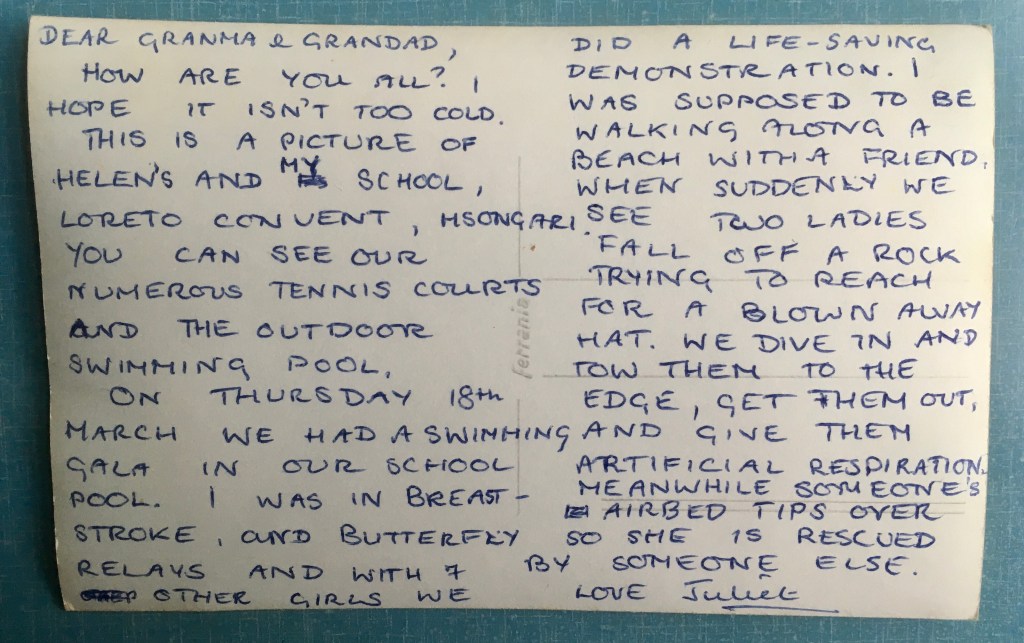 DEAR GRANMA & GRANDAD,
HOW ARE YOU ALL? I
HOPE IT ISN'T TOO COLD.
THIS IS A PICTURE OF
HELEN'S AND MY SCHOOL,
LORETO CONVENT, MSONGARI.
YOU CAN SEE OUR
NUMEROUS TENNIS COURTS
AND THE OUTDOOR
SWIMMING POOL.
ON THURSDAY 18th
MARCH WE HAD A SWIMMING
GALA IN OUR SCHOOL
POOL. I WAS IN BREAST-
STROKE, AND BUTTERFLY
RELAYS AND WITH 7
OTHER GIRLS WE
DID A LIFE-SAVING
DEMONSTRATION. I
WAS SUPPOSED TO BE
WALKING ALONG A
BEACH WITH A FRIEND,
WHEN SUDDENLY WE
SEE TWO LADIES
FALL OFF A ROCK
TRYING TO REACH
FOR A BLOWN AWAY
HAT. WE DIVE IN AND
TOW THEM TO THE
EDGE, GET THEM OUT,
AND GIVE THEM
ARTIFICIAL RESPIRATION.
MEANWHILE SOMEONE'S
AIRBED TIPS OVER
SO SHE IS RESCUED
BY SOMEONE ELSE.
LOVE Juliet
ferrania